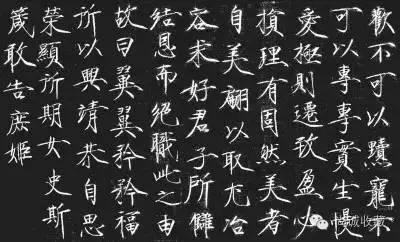 歡不可以黷寵不
可以專專實生慢
愛極則遷致盈必
損理有固然美者
自美翩以取尤冶
容求好君子所讎
結恩而絕職此之由
故曰翼翼矜矜福
所以興靖恭自思
榮顯所期女史斯
箴敢告庶姬
城收藏